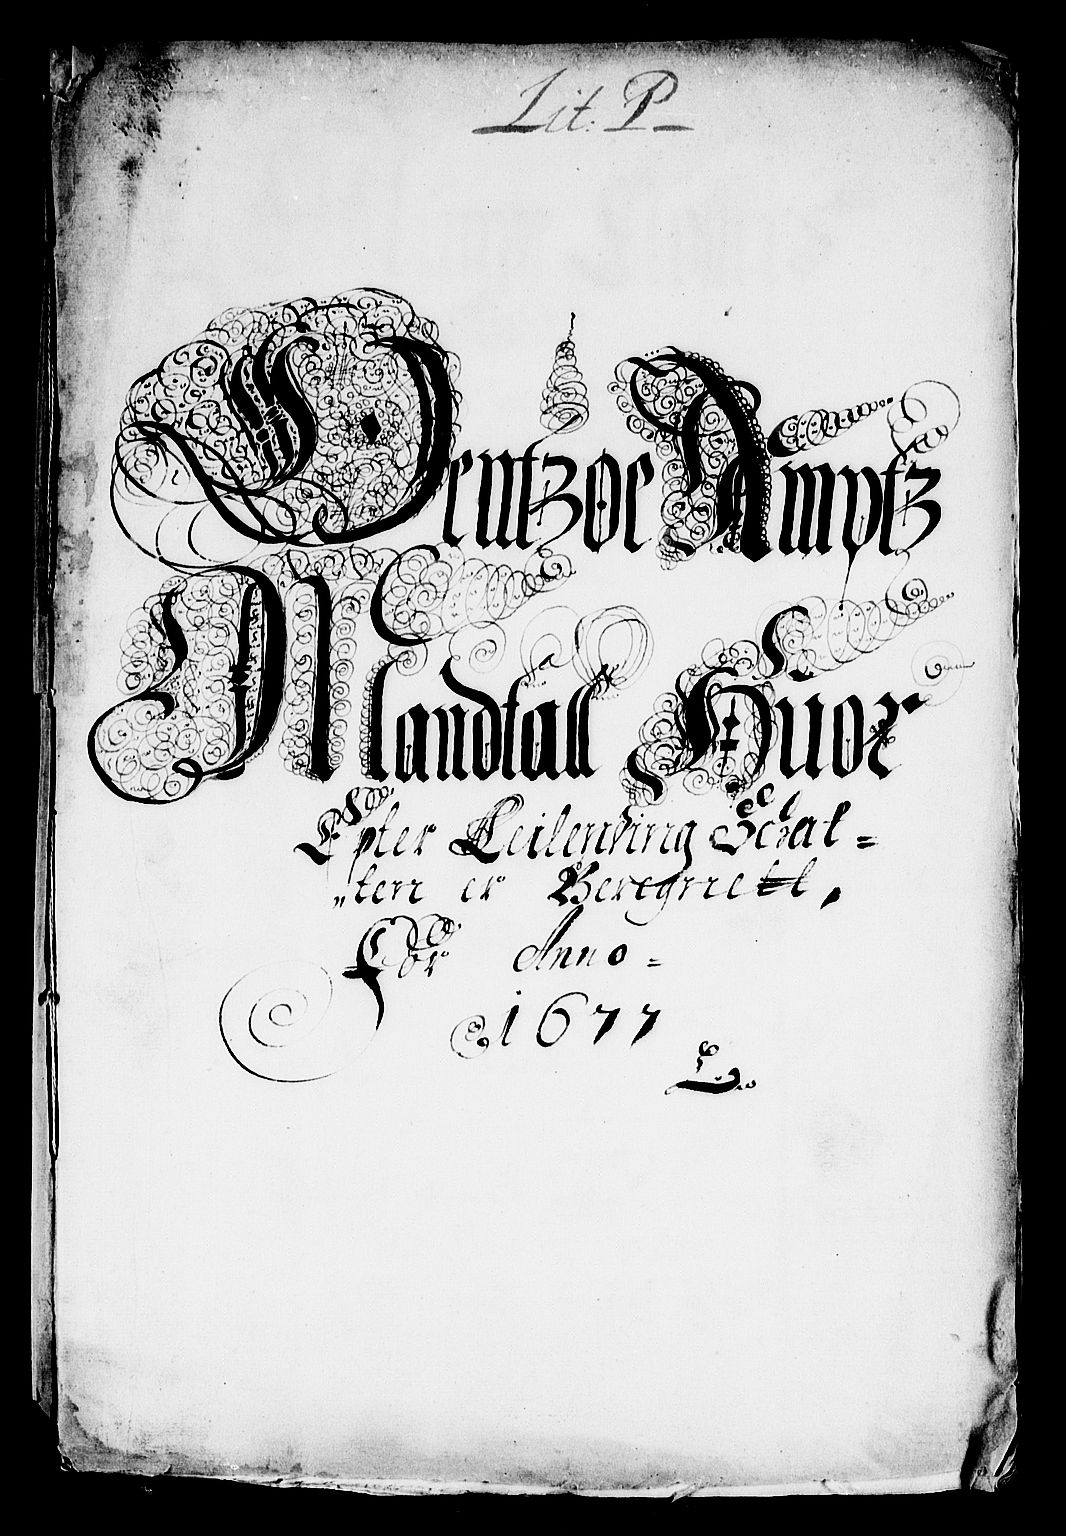 Lit. P
Wentzøe Ambtz
Mandtall Huor
Epter Leilending Schat=
„ten er Beregnett,
For Anno=
1677